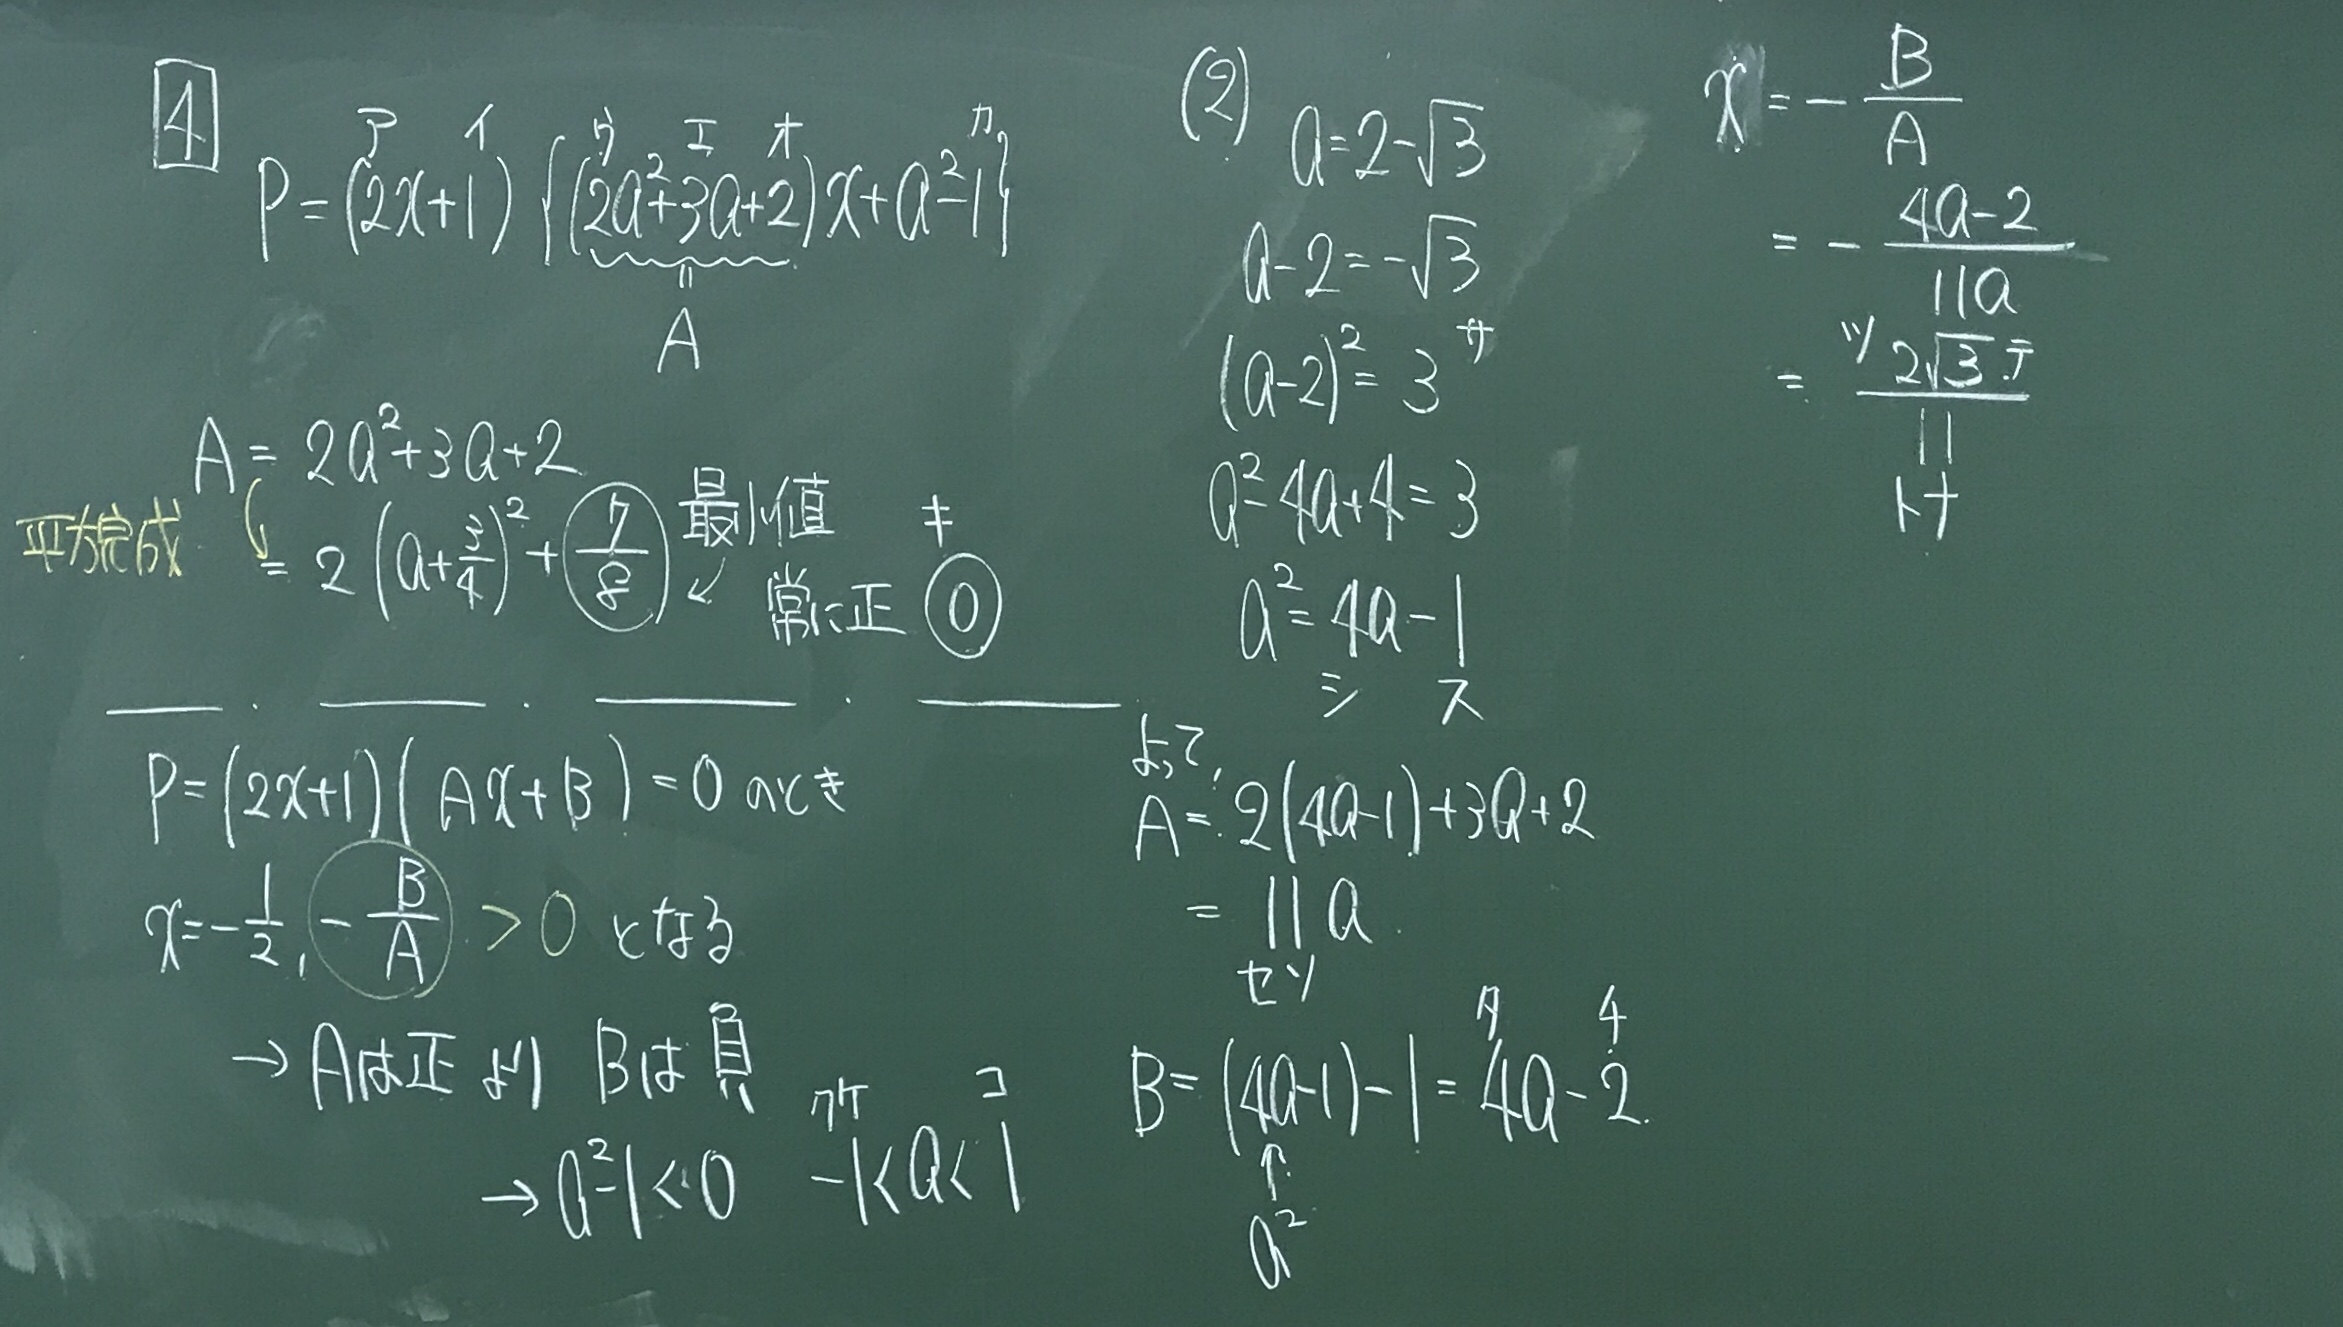 4
ア イ ウ エ オ カ
P=(2x+1){(2a²+3a+2)x+a²-1}
=
A
A=2a²+3a+2
平方完成
=2(a+3/4)²+7/8 最小値
キ
常に正 0
P=(2x+1)(Ax+B)=0のとき
x=-1/2, -B/A >0 となる
→Aは正より Bは負
クケ コ
→a²-1<0 -1<a<1
(2)
a=2-√3
a-2=-√3
(a-2)²=3 サ
a²-4a+4=3
a²=4a-1
シ ス
よって,
A=2(4a-1)+3a+2
=11a
セソ
タ チ
B=(4a-1)-1=4a-2
↑
a²
x=-B/A
=-(4a-2)/11a
ツ テ
=2√3/11
トナ